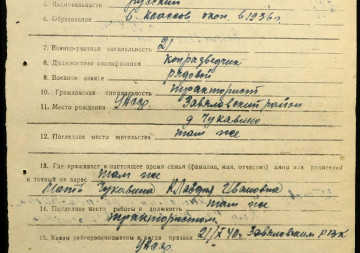 5. Национальность Русский
6. Образование 6 классов окон. в 1936 г.
7. Военно-учетная специальность 21
8. Должностная квалификация конразведчик
9. Военное звание рядовой
10. Гражданская специальность тракторист
11. Место рождения УАССР. Завьяловский район
д. Чукавино
12. Последнее место жительства там же
13. Где проживает в настоящее время семья (фамилия, имя, отчество) жены или родителей
и точный их адрес там же
Мать Чукавина Клавдия Ивановна
14. Последнее место работы и должность там же
трактористом
15. Каким райгорвоенкоматом и когда призван 21/X 40 г. Завьяловским РВК
УАССР.